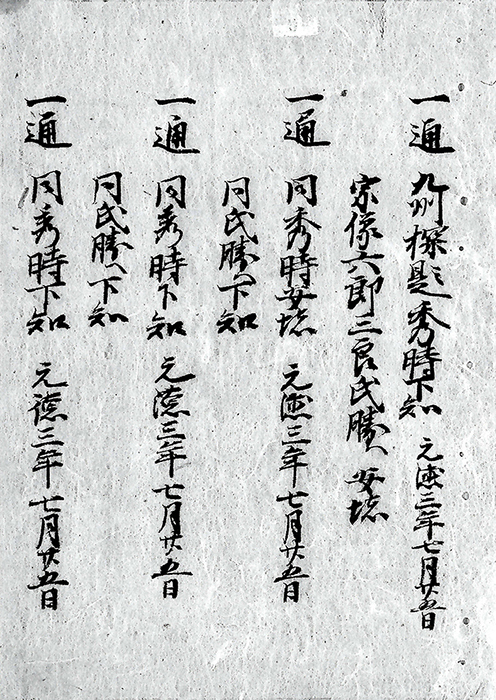 一通 九州探題秀時下知 元徳三年七月廿五日
宗像六郎三良氏勝へ安堵
一通 同秀時安堵 元徳三年七月廿五日
同氏勝へ下知
一通 同秀時下知 元徳三年七月廿五日
同氏勝へ下知
一通 同秀時下知 元徳三年七月廿五日